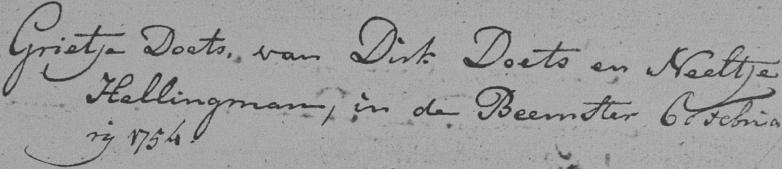 Grietje Doets, van Dirk Doets en Neeltje
Hellingman, in de Beemster 6 Februa
rij 1754.